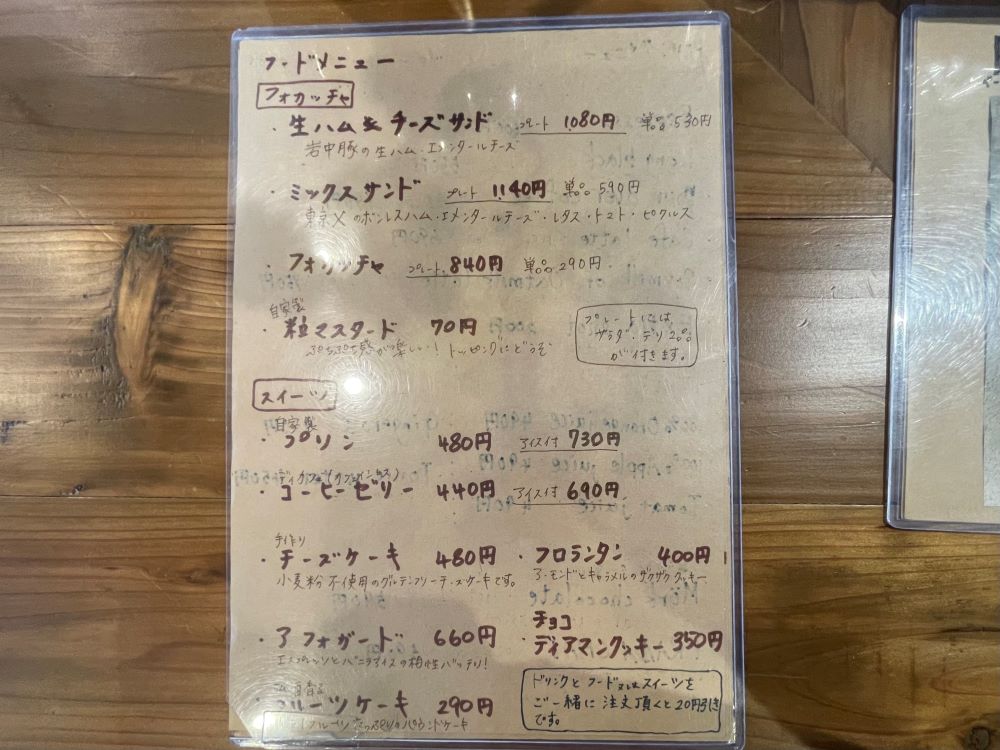 フードメニュー
フォカッチャ
・生ハム&チーズサンド プレート 1,080円 単品 530円
岩中豚の生ハム・エメンタールチーズ
・ミックスサンド プレート 1,140円 単品 590円
東京Xのボンレスハム・エメンタールチーズ・レタス・トマト・ピクルス
・フォカッチャ プレート 840円 単品 290円
自家製
・粒マスタード 70円
ぷちぷち感が楽しい！トッピングにどうぞ
プレートには、
サラダ・デリ2品
が付きます。
スイーツ
自家製
・プリン 480円 アイス付 730円
ディカフェ(カフェインレス)
・コーヒーゼリー 440円 アイス付 690円
手作り
・チーズケーキ 480円
小麦粉不使用のグルテンフリーチーズケーキです。
・フロランタン 400円
アーモンドとキャラメルのザクザククッキー
・アフォガード 660円
エスプレッソとバニラアイスの相性バッチリ！
チョコ
ディアマンクッキー 350円
フルーツケーキ 290円
フルーツたっぷりのパウンドケーキ
ドリンクとフード又はスイーツを
ご一緒に注文頂くと20円引き
です。